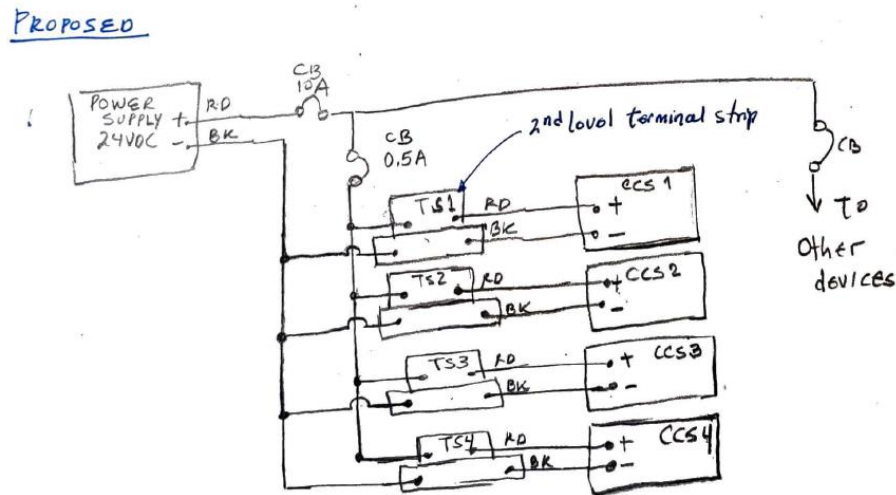 PROPOSED
CB
10A
POWER
SUPPLY +
24VDC -
RD
BK
CB
0.5A
2nd level terminal strip
CB
TO
Other
devices
TS1
RD
BK
CCS 1
+
-
TS2
RD
BK
CCS2
+
-
TS3
RD
BK
CCS3
+
-
TS4
RD
BK
CCS4
+
-